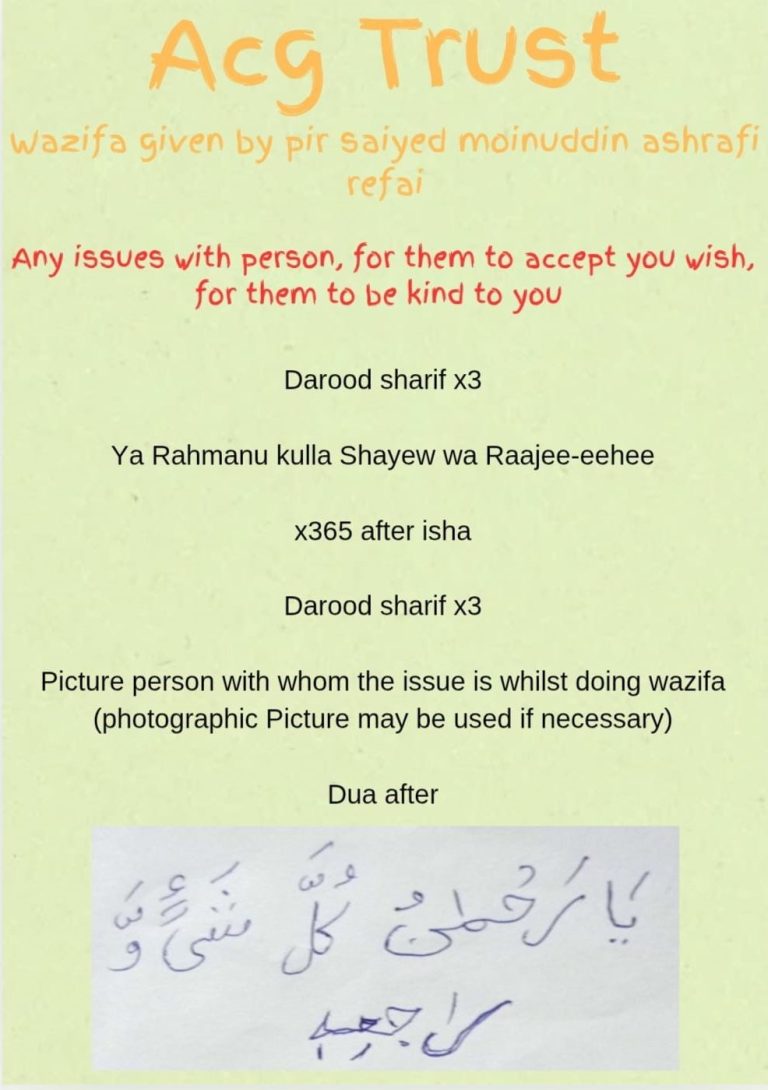 Acg Trust
Wazifa given by pir saiyed moinuddin ashrafi
refai
Any issues with person, for them to accept you wish,
for them to be kind to you
Darood sharif x3
Ya Rahmanu kulla Shayew wa Raajee-eehee
x365 after isha
Darood sharif x3
Picture person with whom the issue is whilst doing wazifa
(photographic Picture may be used if necessary)
Dua after
يَا رَحْمٰنُ كُلَّ شَيْءٍ وَّ